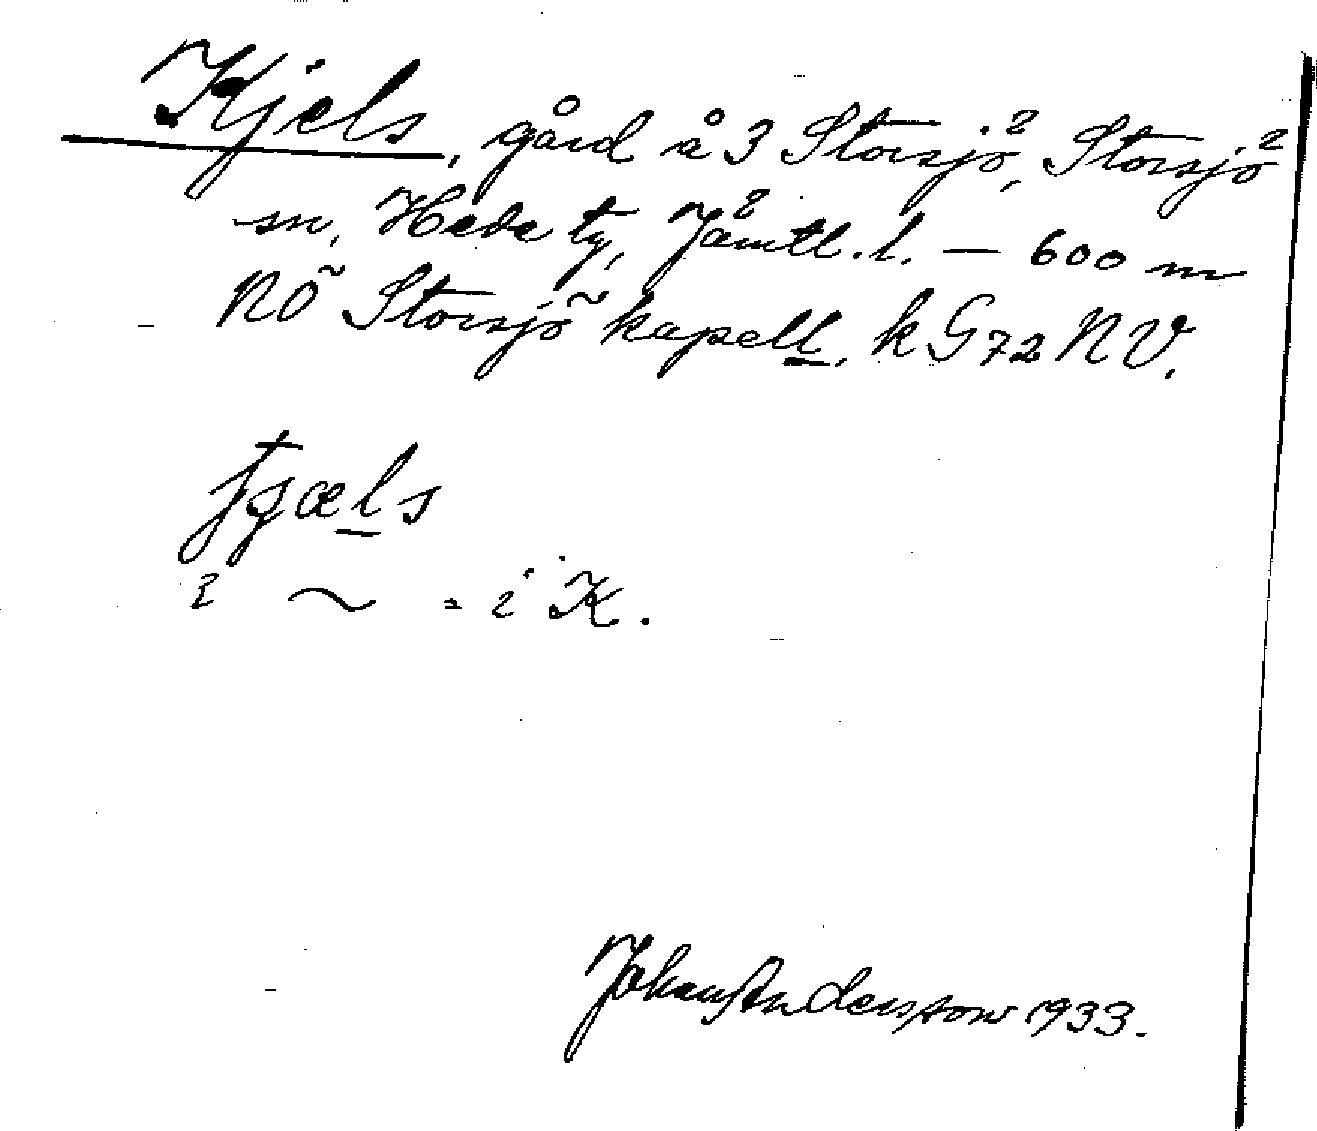 Kjels, gård å 3 Storsjö, Storsjö
sn, Hede tg, Jämtl. l. — 600 m
NÖ Storsjö kapell. k G72 NV.
i ~ = i K.
Johan Andersson 1933.